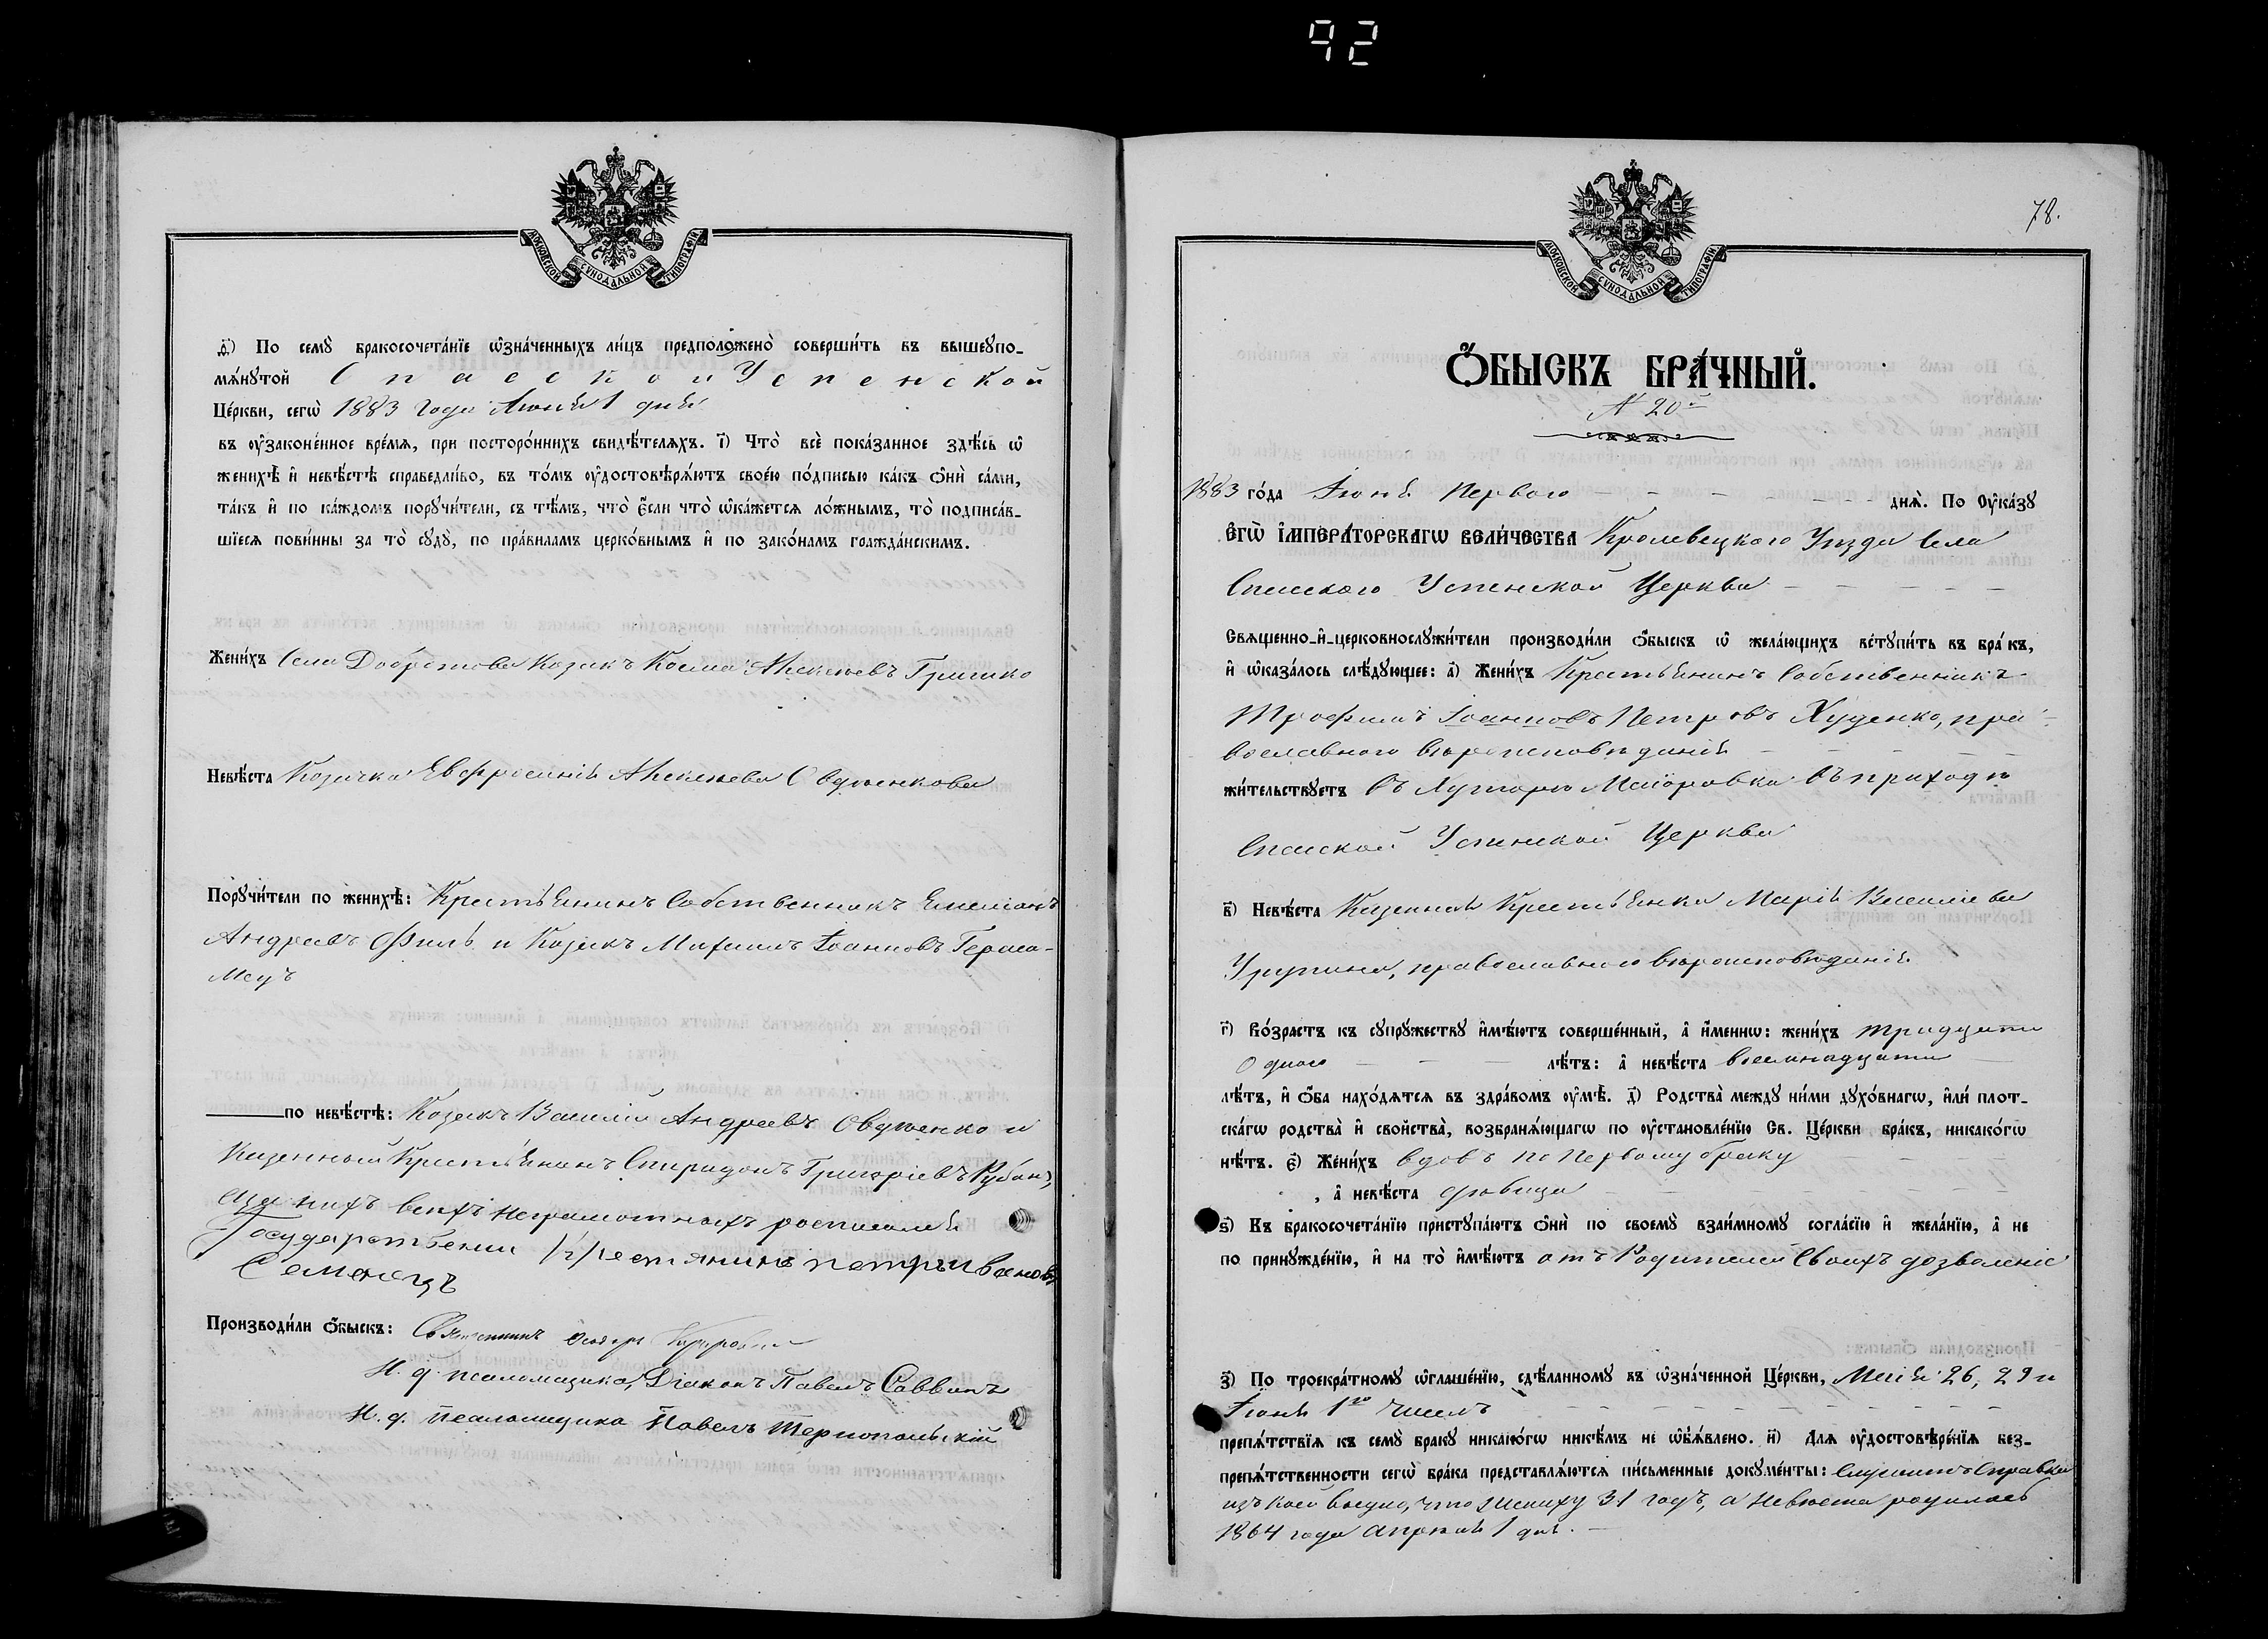 92
МОСКОВСКОЙ СѴНОДАЛЬНОЙ ТИПОГРАФІИ
д҃і) По семꙋ̀ бракосочета́нїе ѡ҆зна́ченныхъ ли́цъ предположено̀ соверши́ть въ вышеꙋпо-
мѧ́нꙋтой Спаской Успенской
Це́ркви, сегѡ̀ 1883 года Іюня 1 дня
въ ᲂу҆законе́нное вре́мѧ, при посторо́ннихъ свидѣ́телѧхъ. і҃) Что̀ всѐ пока́занное здѣ́сь ѡ҆
женихѣ̀ и҆ невѣ́стѣ справедли́во, въ то́мъ ᲂу҆достовѣрѧ́ютъ свое́ю по́дписью ка́къ ѻ҆нѝ са́ми,
та́къ и҆ по ка́ждомъ порꙋчи́тели, съ тѣ́мъ, что̀ е҆́сли что̀ ѡ҆ка́жетсѧ ло́жнымъ, то̀ подписа́в-
шїесѧ пови́нны за то̀ сꙋдꙋ̀, по пра́виламъ церко́внымъ и҆ по зако́намъ гражда́нскимъ.
Жени́хъ Села Добротова Козакъ Косма Алексеевъ Гришко
Невѣ́ста Козачка Евфросинія Алексеева Овдѣенкова
Порꙋчи́тели по женихѣ̀: Крестьянинъ Собственникъ Емеліанъ
Андреевъ Филь и Козакъ Михаилъ Іоанновъ Гераси-
мецъ
по невѣ́стѣ: Козакъ Василій Андреевъ Овдѣенко и
Казенный Крестьянинъ Спиридонъ Григоріевъ Рубанъ,
а за нихъ всехъ неграмотныхъ росписался
Государственн Крестянинъ петръ Ивановъ
Семенецъ
Производи́ли ѻ҆́быскъ: Священникъ
И. д. псаломщика, Діаконъ Павелъ Саввинъ
И. д. псаломщика Павелъ Тернопольскій
78.
МОСКОВСКОЙ СѴНОДАЛЬНОЙ ТИПОГРАФІИ
Ѻ҆́БЫСКЪ БРА́ЧНЫЙ.
№ 20й
1883 го́да Іюня Перваго днѧ̀. По Оу҆ка́зꙋ
Е҆гѡ̀ І҆мпера́торскагѡ Вели́чества Кролевецкаго Уѣзда Села
Спаского Успенской Церкви
Свѧщенно-и҆-церковнослꙋжи́тели производи́ли ѻ҆́быскъ ѡ҆ жела́ющихъ встꙋпи́ть въ бра́къ,
и҆ ѡ҆каза́лось слѣ́дꙋющее: а҃) Жени́хъ Крестьянинъ Собственникъ
Трофимъ Іоанновъ Петровъ Худенко, пра-
вославного вѣроисповѣданія
жи́тельствꙋетъ въ Хуторѣ Маіоровка въ приходѣ
Спаской Успенской Церкви
в҃) Невѣ́ста Казенная Крестьянка Марія Василіева
Урупина, православного вѣроисповѣданія
г҃) Во́зрастъ къ сꙋпрꙋ́жествꙋ и҆мѣ́ютъ соверше́нный, а҆ и҆́меннѡ: жени́хъ тридцати
одного лѣ́тъ: а҆ невѣ́ста восемнадцати
лѣ́тъ, и҆ ѻ҆́ба нахо́дѧтсѧ въ здра́вомъ ᲂу҆мѣ̀. д҃) Родства̀ междꙋ ни́ми дꙋхо́внагѡ, и҆лѝ плот-
ска́гѡ родства̀ и҆ свойства̀, возбранѧ́ющагѡ по ᲂу҆становле́нїю Св. Це́ркви бра́къ, никако́гѡ
нѣ́тъ. є҃) Жени́хъ вдовъ по Первому браку
, а҆ невѣ́ста дѣвица
ѕ҃) Къ бракосочета́нїю пристꙋпа́ютъ ѻ҆нѝ по своемꙋ̀ взаи́мномꙋ согла́сїю и҆ жела́нїю, а҆ не
по принꙋжде́нїю, и҆ на то̀ и҆мѣ́ютъ отъ Родителей Своихъ дозволеніе
з҃) По троекра́тномꙋ ѡ҆глаше́нїю, сдѣ́ланномꙋ въ ѡ҆зна́ченной Це́ркви, Мая 26, 29 и
Іюня 1го чиселъ
препѧ́тствїѧ къ семꙋ̀ бра́кꙋ никако́гѡ никѣ́мъ не ѡ҆б̾ѧ́влено. и҃) Длѧ ᲂу҆достовѣре́нїѧ без-
препѧ́тственности сегѡ̀ бра́ка представлѧ́ютсѧ пи́сьменные докꙋме́нты: служитъ Справка
изъ коей видно, что жениху 31 годъ, а невѣста родилась
1864 года Апреля 1 дня.